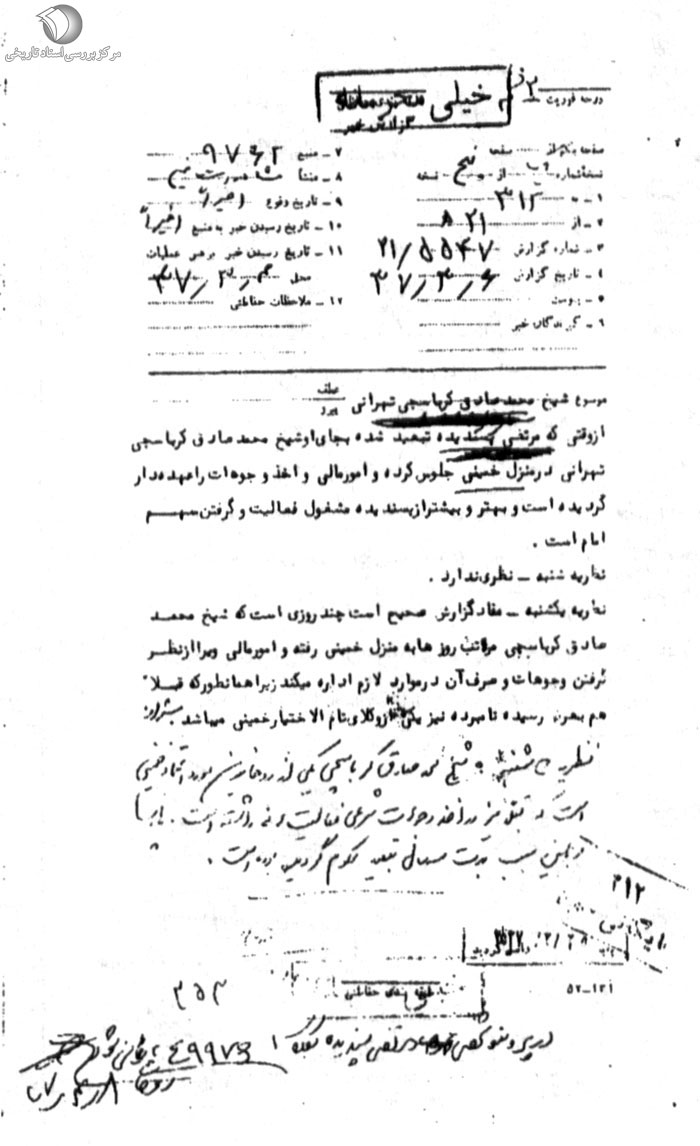 مرکز بررسی اسناد تاریخی
درجه فوریت
خیلی
گزارش خبر
صفحه یکم از صفحه
نسخه شماره از پنج نسخه
۱ - به ۳۱۲
۲ - از ۲۱ ه
۳ - شماره گزارش ۲۱/۵۵۴۷
۴ - تاریخ گزارش ۴۷٫۳٫۶
۵ - پیوست
۶ - گیرندگان خبر
۷ - منبع ۹۷۶۲
۸ - منشأ
۹ - تاریخ وقوع اخیراً
۱۰ - تاریخ رسیدن خبر به منبع اخیراً
۱۱ - تاریخ رسیدن خبر برهبر عملیات
محل ۴۷٫۳٫
۱۲ - ملاحظات حفاظتی
موضوع شیخ محمد صادق کرباسچی تهرانی عطف پیرو
ازوقتی که مرتضی پسندیده تبعید شده بجای اوشیخ محمد صادق کرباسچی
تهرانی درمنزل خمینی جلوس کرده و امورمالی و اخذ وجوهات راعهده‌دار
گردیده است و بهتر و بیشترازپسندیده مشغول فعالیت و گرفتن سهم
امام است .
نظریه شنبه - نظری ندارد .
نظریه یکشنبه - مفاد گزارش صحیح است چند روزی است که شیخ محمد
صادق کرباسچی مراتب روزها به منزل خمینی رفته و امورمالی ویرا ازنظر
گرفتن وجوهات و صرف آن درموارد لازم اداره میکند زیرا همانطورکه قبلا"
هم بعرض رسیده نامبرده نیز یکی ازوکلای تام الاختیارخمینی میباشد
نظریه شنبه شیخ محمد صادق کرباسچی یکی از روحانیون مورد اعتماد خمینی
است که قبلا نیز در اخذ وجوهات شرعی فعالیت داشته است.
و بهمین سبب بمدت سه سال تبعید محکوم گردیده است.
۳۱۲
طبقه بندی حفاظتی
۵۲-۱۳۱
۳۵۳
در پرونده مرتضی پسندیده کلاسه ۴۹۹۷۶